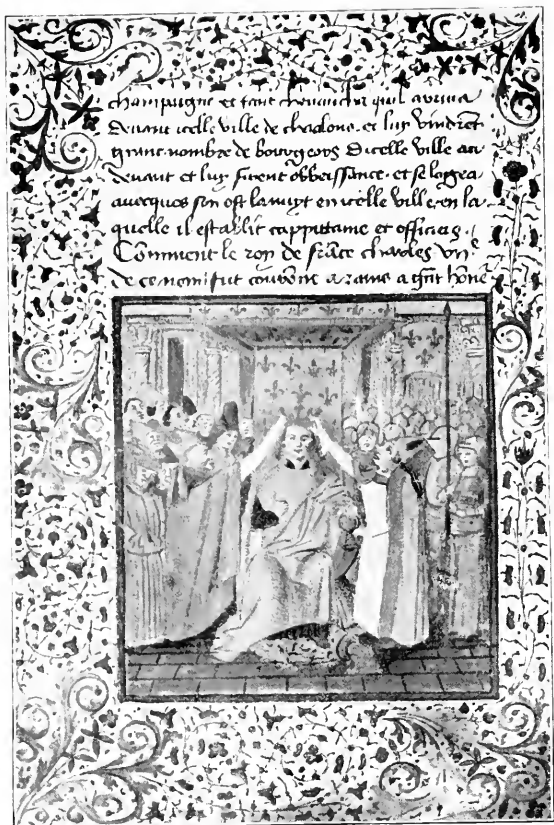 champaigne et tant chevaucha quil ariva
devant icelle ville de chaalons. et luy vindrent
grant nombre de bourgeois dicelle ville au
devant et luy firent obbeissance. et se logea
avecques son ost la nuyt en icelle ville. en la
quelle il establit cappitaine et officiers.
Comment le roy de france charles vii
de ce nom fut couronne a rains a grant